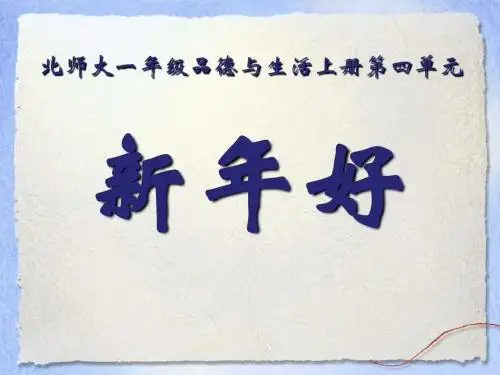 北师大一年级品德与生活上册第四单元
新年好